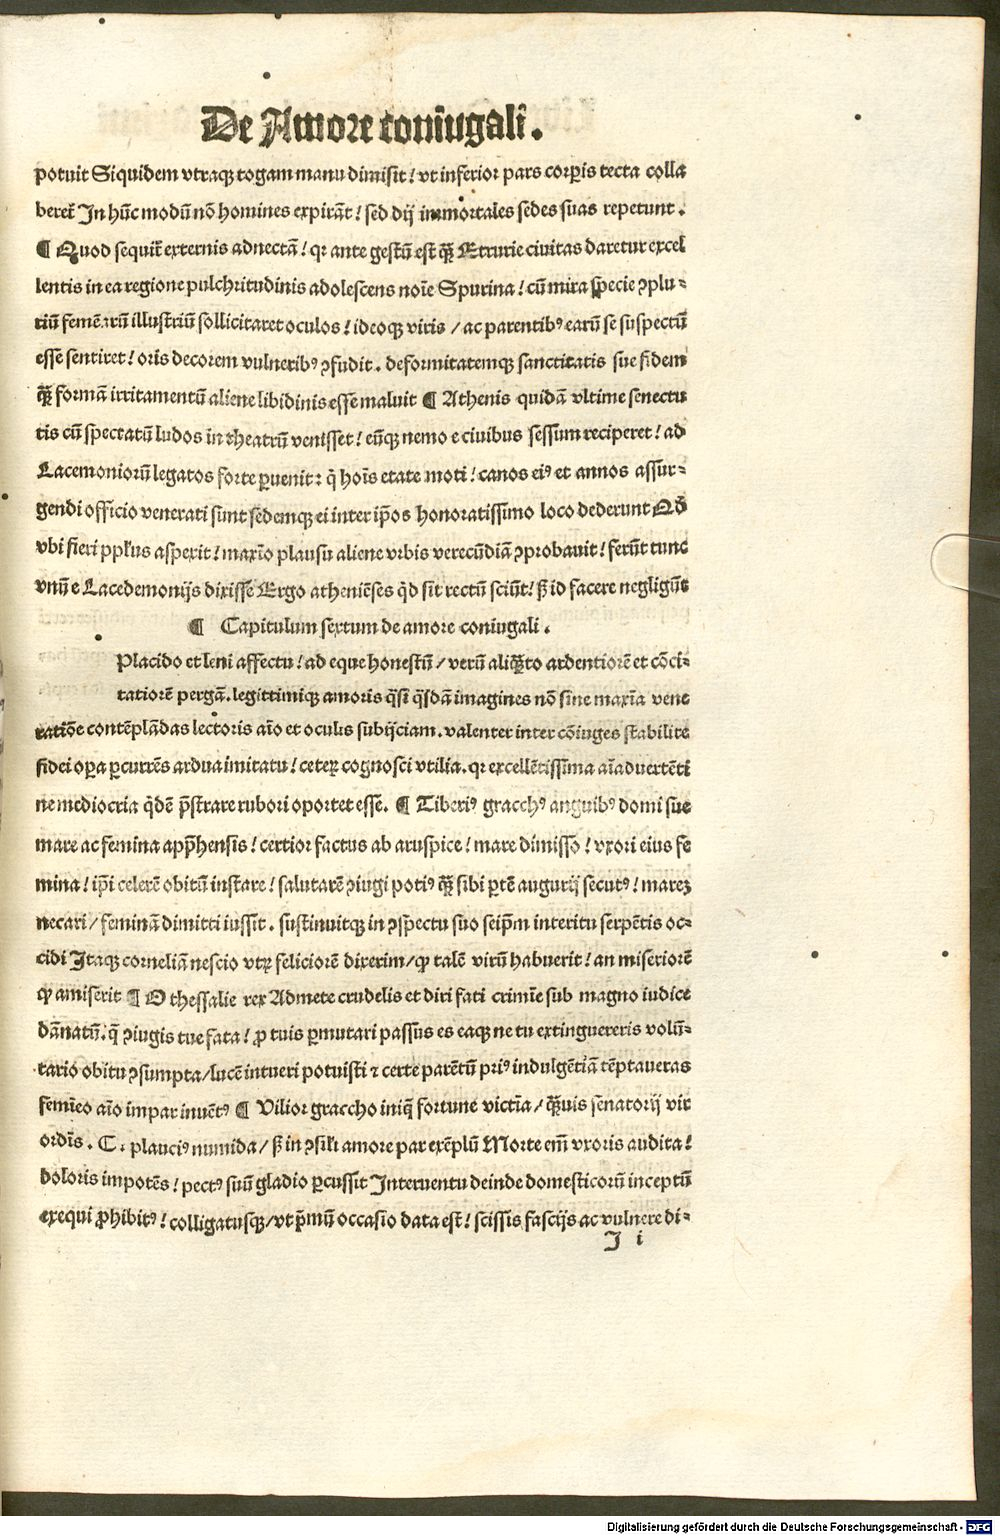 De Amore coniũgali.
potuit Siquidem vtraqꝫ togam manu dimisit! vt inferior pars corꝑis tecta colla
beret̃ In hũc modũ nõ homines expirãt! sed dij immortales sedes suas repetunt.
¶ Quod sequit̃ externis adnectã! qꝛ ante gestũ est q̃ꝫ Etrurie ciuitas daretur excel
lentis in ea regione pulchritudinis adolescens noĩe Spurina! cũ mira specie ꝯplu⸗
riũ femĩarũ illustriũ sollicitaret oculos! ideoqꝫ viris / ac parentibꝰ earũ se suspectũ
esse sentiret! oris decorem vulneribꝰ ꝯfudit. deformitatemqꝫ sanctitatis sue fidem
q̃ꝫ formã irritamentũ aliene libidinis esse maluit ¶ Athenis quidã vltime senectu
tis cũ spectatũ ludos in theatrũ venisset! eũqꝫ nemo e ciuibus sessum reciperet! ad
Lacemoniorũ legatos forte ꝑuenit: q̃ hoĩs etate moti! canos eiꝰ et annos assur⸗
gendi officio venerati sunt sedemqꝫ ei inter ip̃os honoratissimo loco dederunt Qd̃
vbi fieri pp̃lus aspexit! maxĩo plausu aliene vrbis verecũdiã ꝯprobauit! ferũt tunc
vnũ e Lacedemonijs dixisse Ergo atheniẽses q̃d sit rectũ sciũt! ß id facere negligũt
¶ Capitulum sextum de amore coniũgali.
Placido et leni affectu! ad eque honestũ / verũ aliq̃ꝫto ardentiorẽ et cõci⸗
tatiorẽ pergã. legittimiqꝫ amoris q̃si q̃sdã imagines nõ sine maxĩa vene
ratiõe contẽplãdas lectoris aĩo et oculis subijciam. valenter inter cõiuges stabilite
fidei oꝑa ꝑcurrẽs ardua imitatu! ceteꝝ cognosci vtilia. qꝛ excellẽtissima aĩaduertẽti
ne mediocria q̃dẽ p̃strare rubori oportet esse. ¶ Tiberiꝰ gracchꝰ anguibꝰ domi sue
mare ac femina app̃hensis! certior factus ab aruspice! mare dimisso! vxori eius fe
mina! ip̃i celerẽ obitũ instare! salutarẽ ꝯiugi potiꝰ q̃ꝫ sibi ꝑtẽ augurij secutꝰ! mareꝫ
necari / feminã dimitti iussit. sustinuitqꝫ in ꝯspectu suo seip̃m interitu serpẽtis oc⸗
cidi Itaqꝫ corneliã nescio vtꝝ feliciorẽ dixerim / ꝙ talẽ virũ habuerit! an miseriorẽ
ꝙ amiserit ¶ O thessalie rex Admete crudelis et diri fati crimĩe sub magno iudice
dãnatũ. q̃ ꝯiugis tue fata! ꝓ tuis ꝑmutari passus es eaqꝫ ne tu extinguereris volũ⸗
tario obitu ꝯsumpta / lucẽ intueri potuisti ⁊ certe parẽtũ priꝰ indulgẽtiã tẽptaueras
femĩeo aĩo impar inuẽtꝰ ¶ Vilior graccho iniq̃ fortune victĩa / q̃ꝫuis senatorij vir
ordĩs. C. plauciꝰ numida / ß in ꝯsili amore par exẽplũ Morte em̃ vxoris audita!
doloris impotẽs! pectꝰ suũ gladio ꝑcussit Interuentu deinde domesticorũ inceptũ
exequi ꝓhibitꝰ! colligatusqꝫ / vt p̃mũ occasio data est! scissis fascijs ac vulnere di⸗
I i
Digitalisierung gefördert durch die Deutsche Forschungsgemeinschaft - DFG